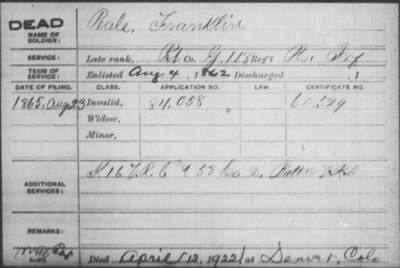 DEAD
NAME OF
SOLDIER:
Peale, Franklin
SERVICE:
Late rank, Pvt Co. G, 118 Regt Pa. Inf
TERM OF
SERVICE:
Enlisted Aug 4, 1862 Discharged , 1
DATE OF FILING.
CLASS.
APPLICATION NO.
LAW.
CERTIFICATE NO.
1865, Aug 23
Invalid,
84,058
60,529
Widow,
Minor,
ADDITIONAL
SERVICES:
K 16 V.R.C & 58 Co 2,
REMARKS:
Died April 13, 1922, at Denver, Colo